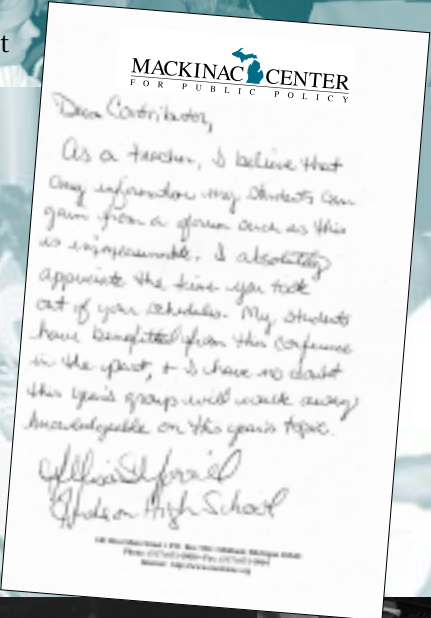 t
MACKINAC CENTER
FOR PUBLIC POLICY
Dear Contributor,
As a teacher, I believe that
any information my students can
gain from a forum such as this
is immeasurable. I absolutely
appreciate the time you took
out of your schedules. My students
have benefitted from this conference
in the past, + I have no doubt
this year's group will walk away
knowledgeable on this year's topic.
High School